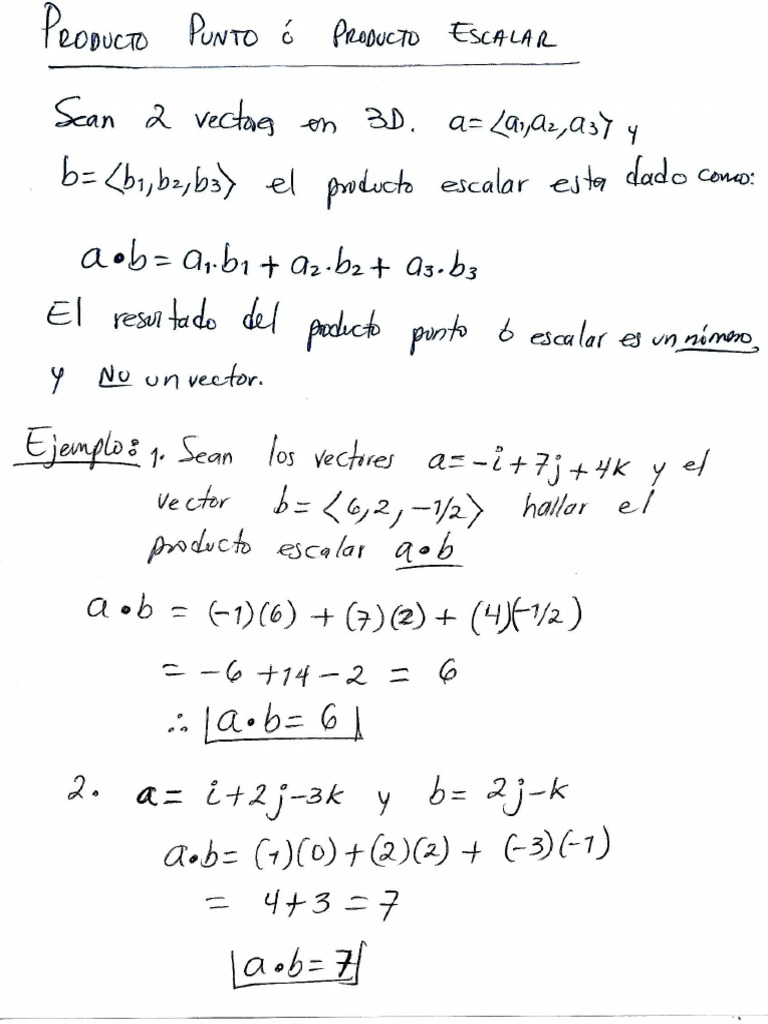 PRODUCTO PUNTO ó PRODUCTO ESCALAR
Sean 2 vectores en 3D. a=⟨a₁,a₂,a₃⟩ y
b=⟨b₁,b₂,b₃⟩ el producto escalar esta dado como:
a•b = a₁·b₁ + a₂·b₂ + a₃·b₃
El resultado del producto punto ó escalar es un número,
y NO un vector.
Ejemplo: 1. Sean los vectores a=-i+7j+4k y el
vector b=⟨6,2,-1/2⟩ hallar el
producto escalar a•b
a•b = (-1)(6) + (7)(2) + (4)(-1/2)
= -6+14-2 = 6
∴ a•b = 6
2. a= i+2j-3k y b= 2j-k
a•b= (1)(0)+(2)(2) + (-3)(-1)
= 4+3 = 7
a•b=7